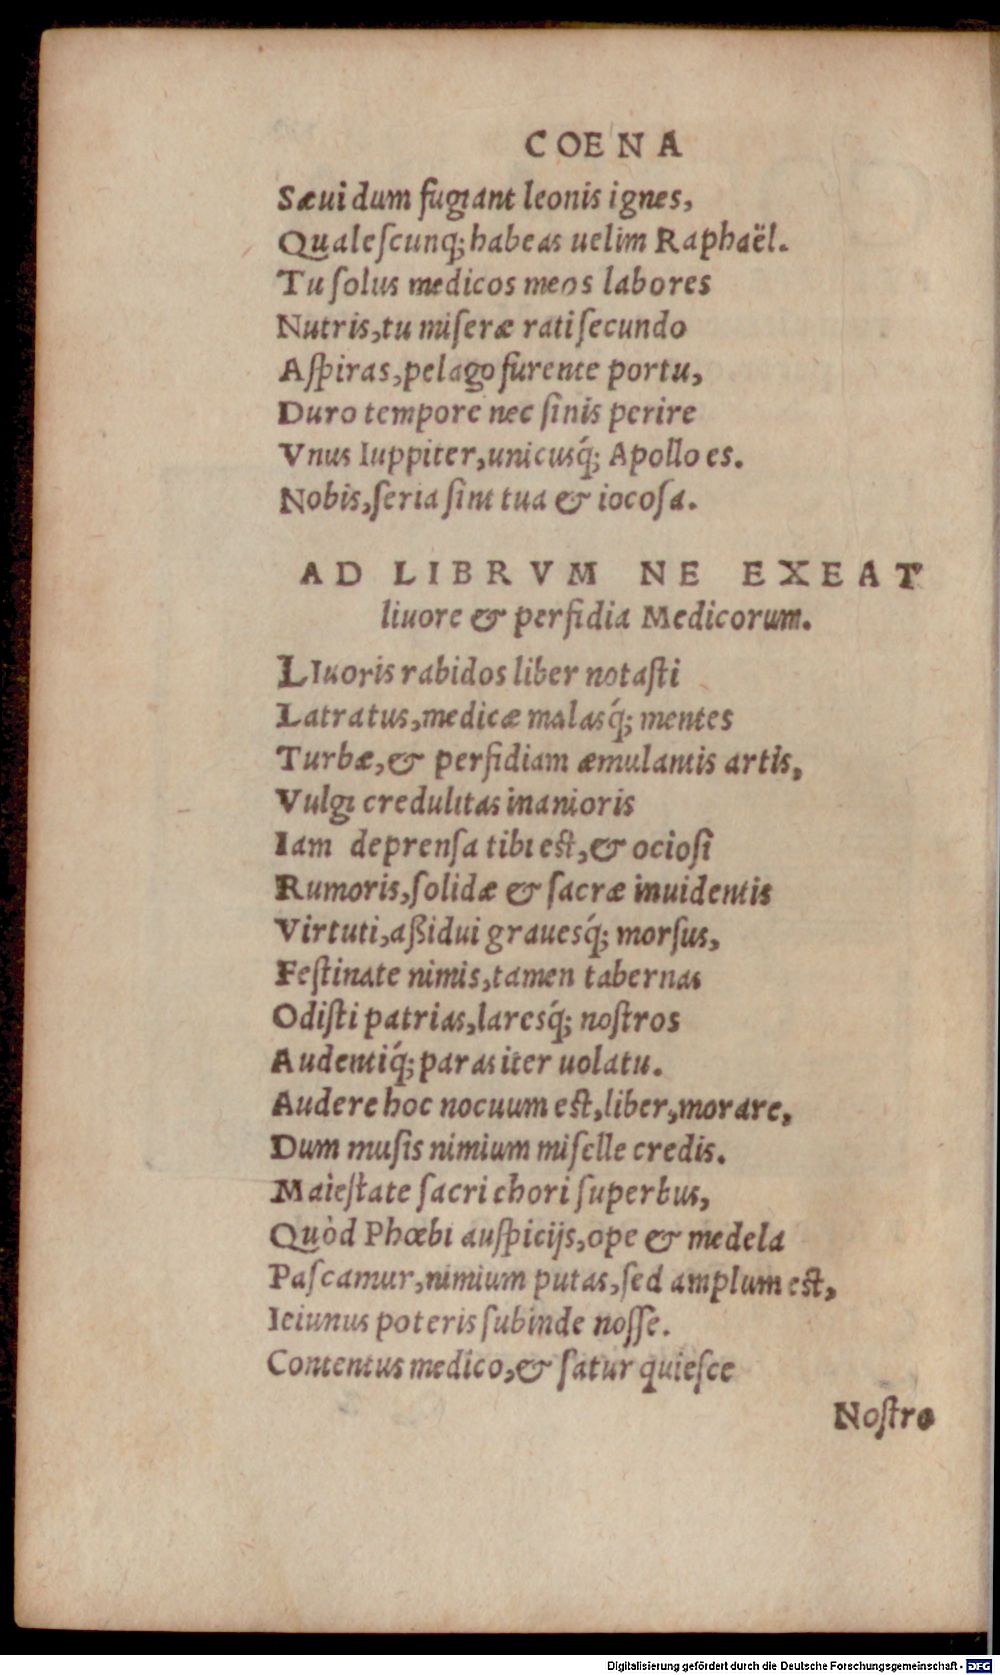 COENA
Sæui dum fugiant leonis ignes,
Qualeſcunq; habeas uelim Raphaël.
Tu ſolus medicos meos labores
Nutris, tu miſeræ rati ſecundo
Aſpiras, pelago furente portu,
Duro tempore nec ſinis perire
Vnus Iuppiter, unicusq́; Apollo es.
Nobis, ſeria ſint tua & iocoſa.
AD LIBRVM NE EXEAT
liuore & perfidia Medicorum.
LIuoris rabidos liber notaſti
Latratus, medicæ malasq́; mentes
Turbæ, & perfidiam æmulantis artis,
Vulgi credulitas inanioris
Iam deprenſa tibi eſt, & ocioſi
Rumoris, ſolidæ & ſacræ inuidentis
Virtuti, aßidui grauesq́; morſus,
Feſtinate nimis, tamen tabernas
Odiſti patrias, laresq́; noſtros
Audentiq́; paras iter uolatu.
Audere hoc nocuum eſt, liber, morare,
Dum muſis nimium miſelle credis.
Maieſtate ſacri chori ſuperbus,
Quòd Phœbi auſpicijs, ope & medela
Paſcamur, nimium putas, ſed amplum eſt,
Ieiunus poteris ſubinde noſſe.
Contentus medico, & ſatur quieſce
Noſtro
Digitalisierung gefördert durch die Deutsche Forschungsgemeinschaft - DFG